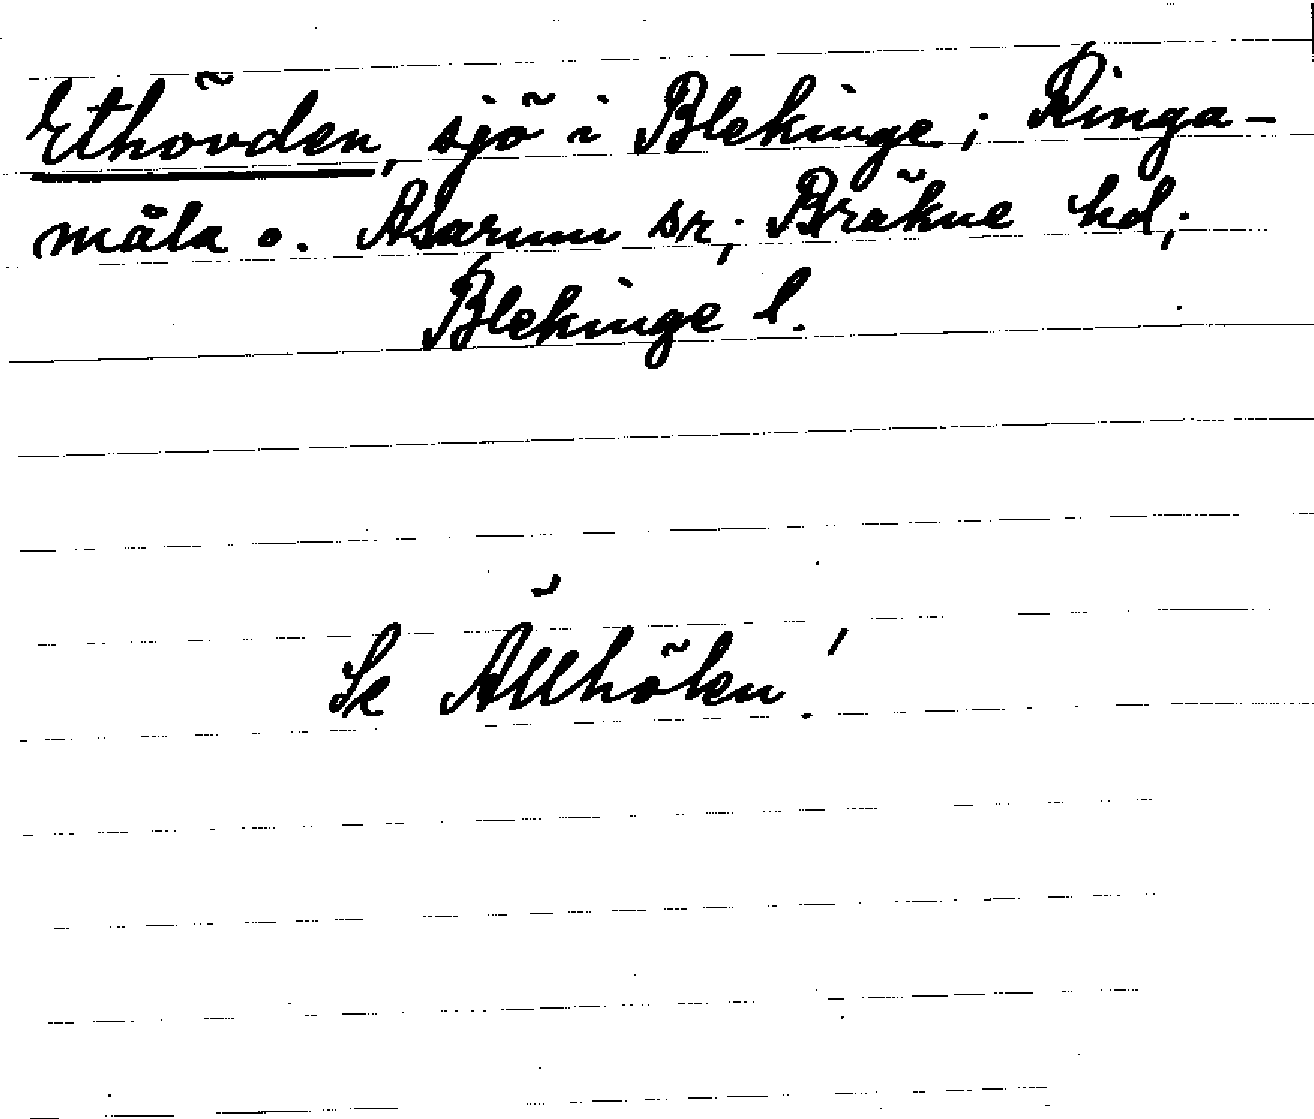 Ethövden, sjö i Blekinge; Ringa-
måla o. Asarum sr; Bräkne hd;
Blekinge l.
Se Ällhölen!